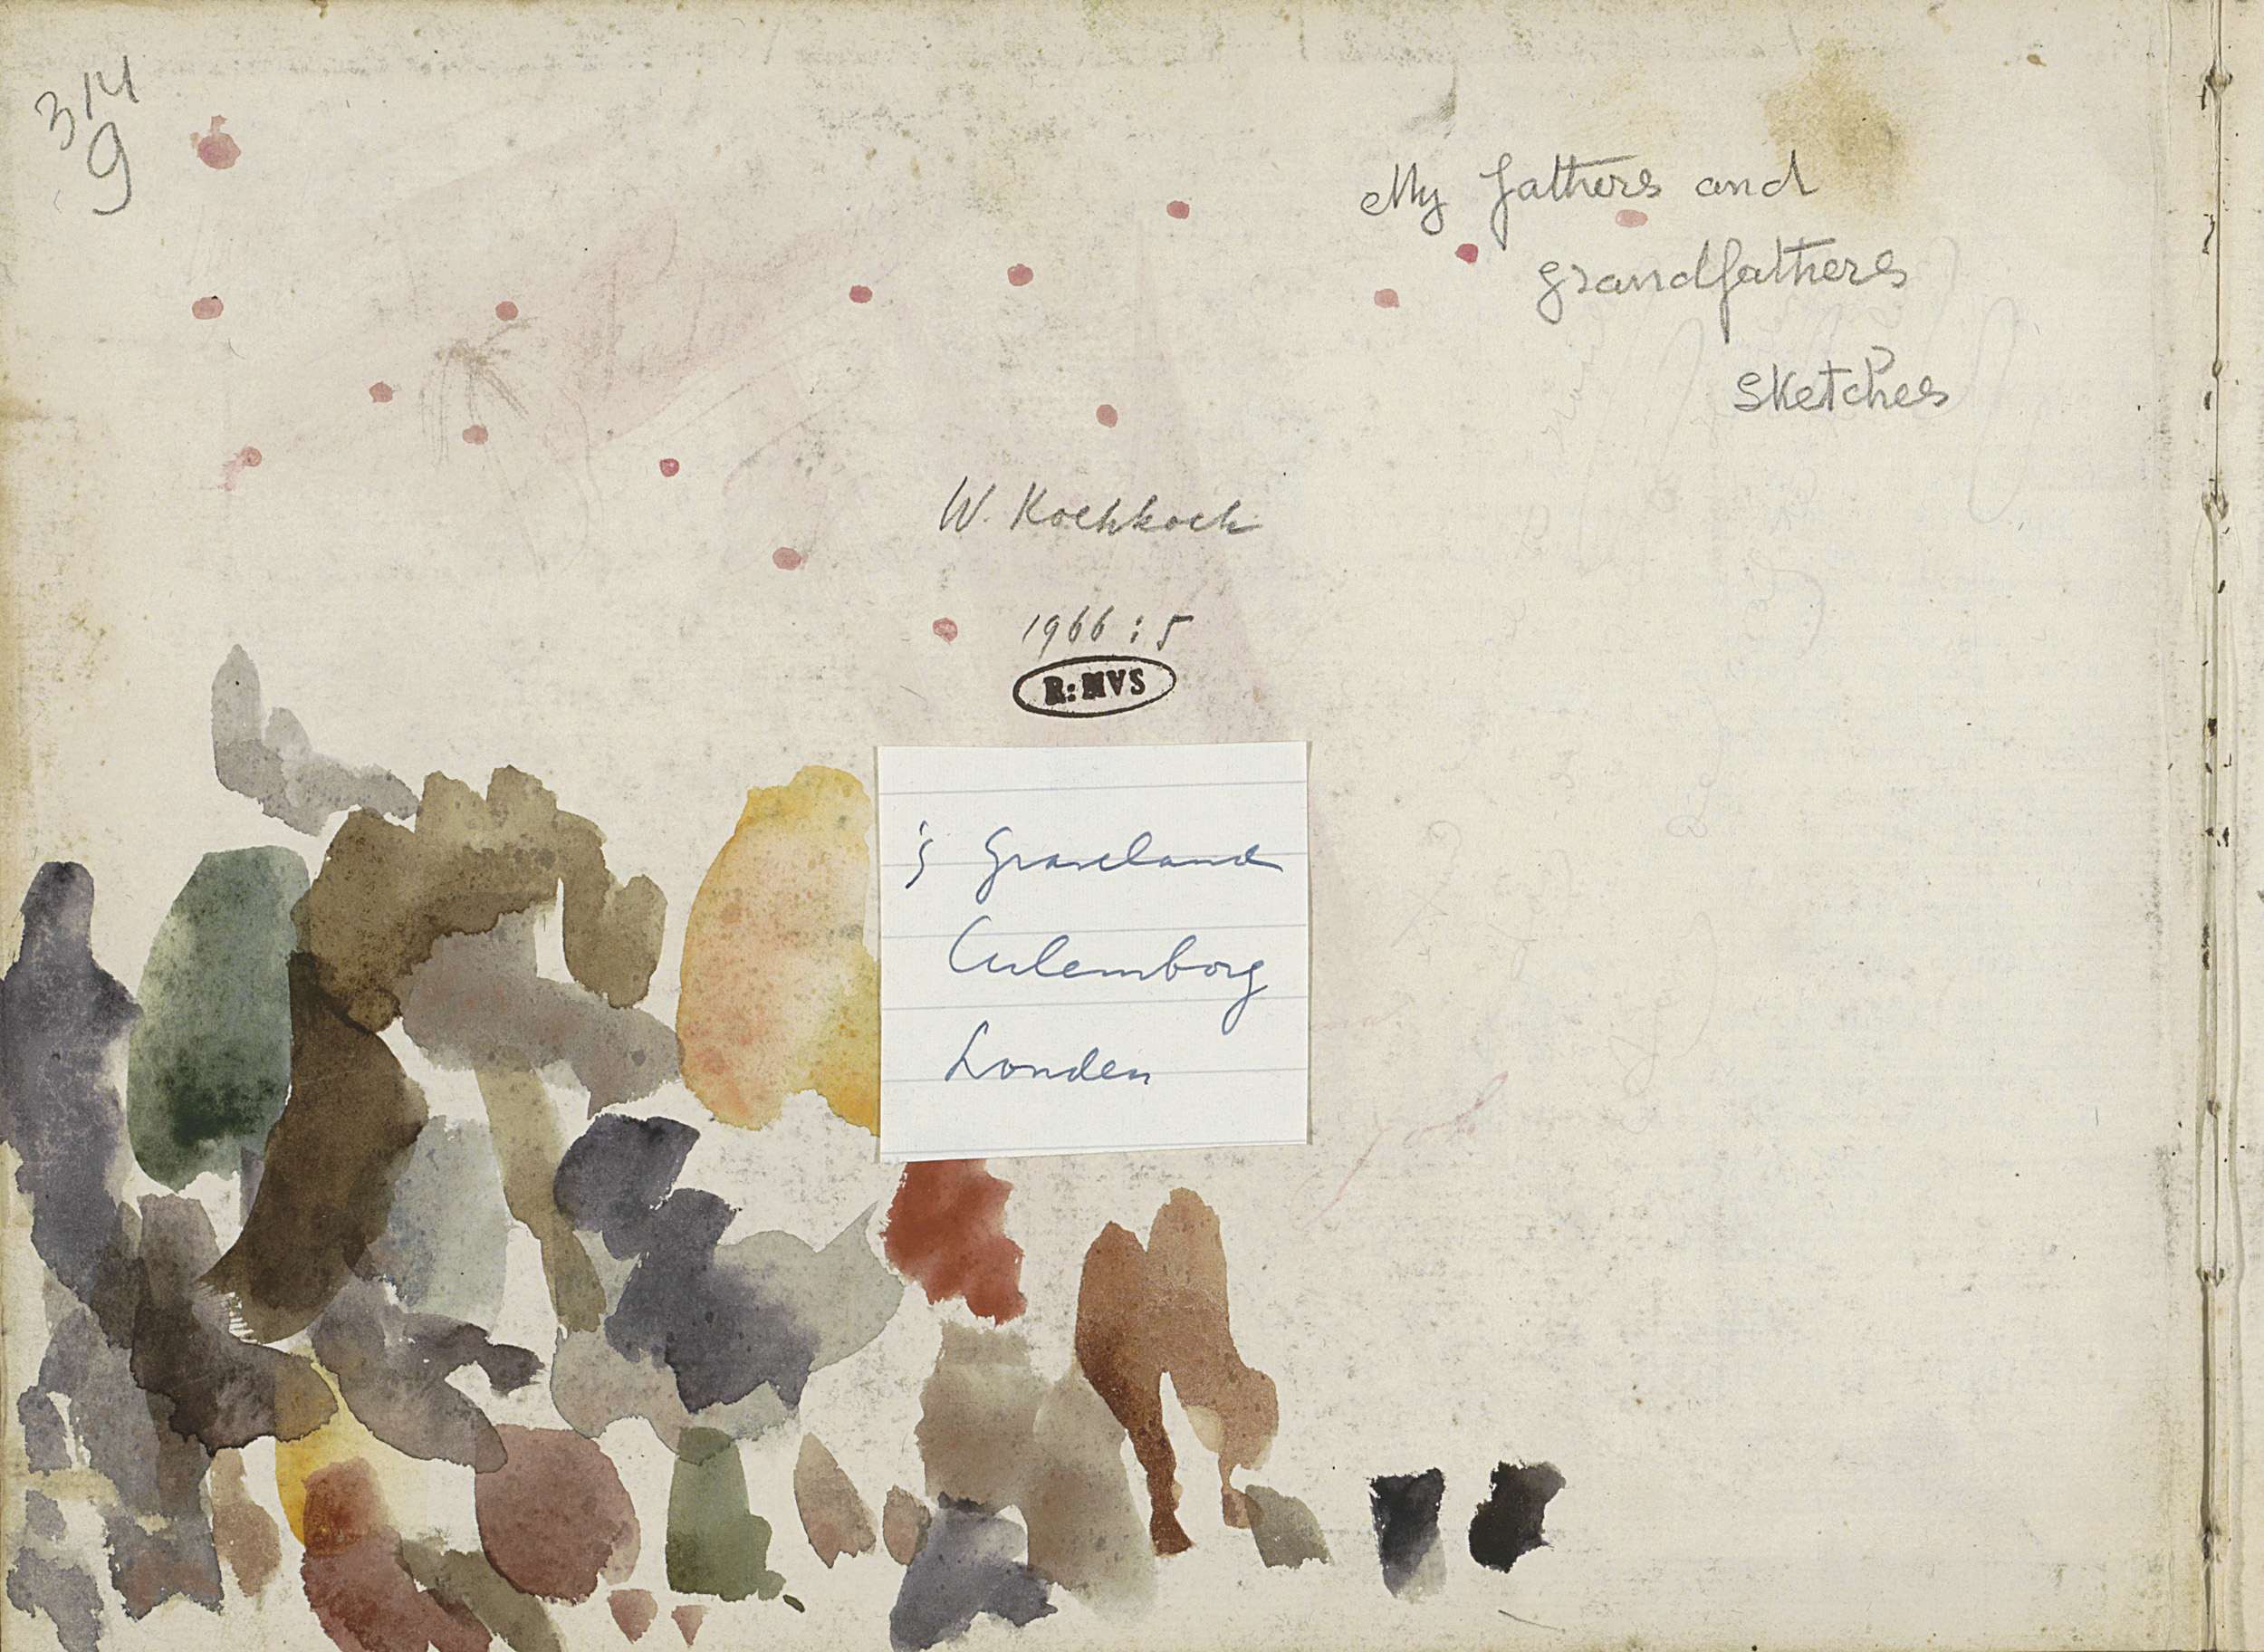 314
9
My fathers and
grandfathers
sketches
W. Koekkoek
1966:5
R:MVS
's Graveland
Culemborg
Londen